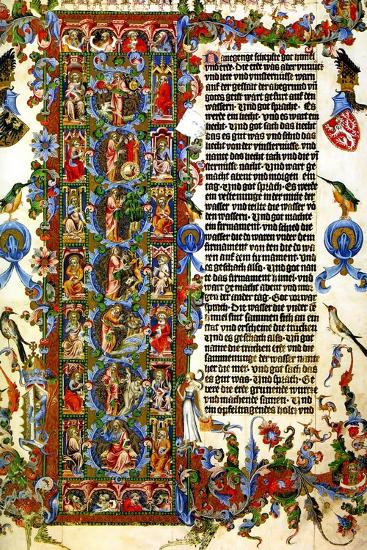 anegenge schepfte got himel
vnd erde. Die erde was aber vnnutz
vnd lere vnd vinsternüsse warn
auf der gestalt der abegrund vn
gotes geist wart gefurt auf den
wassern. Vnd got sprach. Es
werde ein liecht. Vnd es wart ein
liecht. Vnd got sach das liecht
das es gut was vnd schied das
liecht von der vinsternusse. vnd
nante das liecht tach vnd die vin
sternusse nacht. Vnd wart ge
macht abent vnd morgen ein
tag. Vnd got sprach. Es werde
ein vestenunge in der mitte der
wasser vnd teile die wasser vo
den wassern. Vnd got machte
ein firmament. vnd schied die
wasser die da waren vnder dem
firmament von den die do wa
ren auf dem firmament. Vnd
es geschach also. Vnd got nan
te das firmament himel vnd
wart gemacht abent vnd mor
gen der ander tag. Got sprach
Die wasser die vnder dem
himel sint sammen sich an ein
stat vnd erscheine die trucken
Vnd es geschach also. Vnd got
nante die trucken erde vnd die
sammenunge der wasser nante
er die mer. vnd got sach das
es gut was. Vnd sprach. Ge
bere die erde grunende wurtze
vnd machende samen. Vnd
ein opfeltragendes holtz vnd